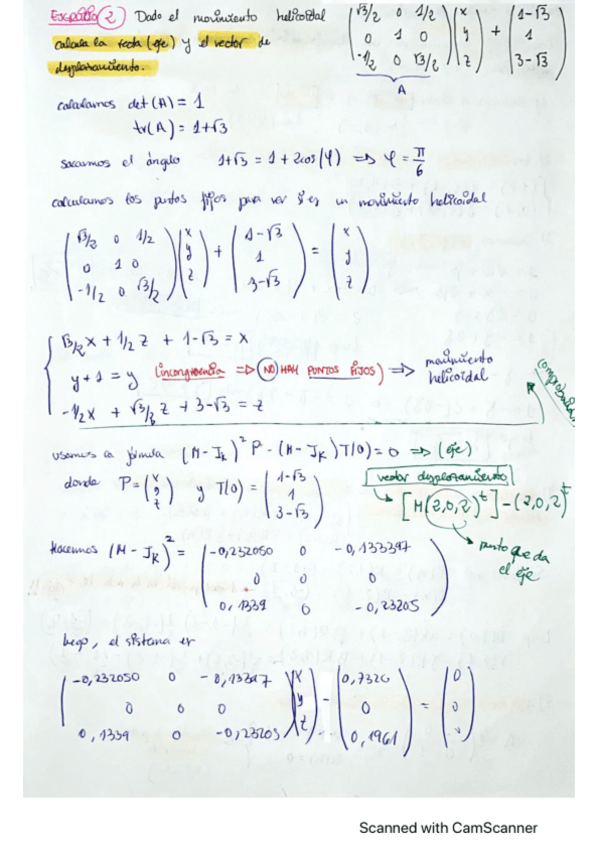 Espacio 2 Dado el movimiento helicoidal (√3/2 0 1/2) (x) + (1-√3)
calcula la recta (eje) y el vector de (0 1 0) (y) (1)
desplazamiento. (-1/2 0 √3/2) (z) (3-√3)
A
calculamos det(A) = 1
tr(A) = 1+√3
sacamos el ángulo 1+√3 = 1+2cos(φ) => φ = π/6
calculamos los puntos fijos para ver si es un movimiento helicoidal
(√3/2 0 1/2) (x) + (1-√3) = (x)
(0 1 0) (y) (1) (y)
(-1/2 0 √3/2) (z) (3-√3) (z)
√3/2 x + 1/2 z + 1-√3 = x
y+1 = y (incongruencia => NO HAY PUNTOS FIJOS) => movimiento helicoidal
-1/2 x + √3/2 z + 3-√3 = z
usamos la fórmula (M-Jk)² P - (M-Jk) T(0) = 0 => (eje)
donde P = (x y z) y T(0) = (1-√3 1 3-√3)
vector desplazamiento
[M(2,0,2)^t] - (2,0,2)^t
punto que da
el eje
Hacemos (M-Jk)² = (-0,232050 0 -0,133397)
(0 0 0)
(0,1339 0 -0,23205)
luego, el sistema es
(-0,232050 0 -0,13397) (x) - (0,7320) = (0)
(0 0 0) (y) (0) (0)
(0,1339 0 -0,23205) (z) (0,1961)
Scanned with CamScanner